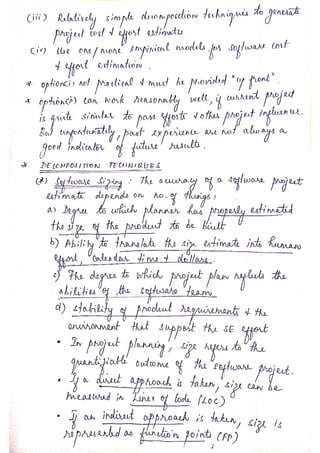 (iii) Relatively simple decomposition techniques to generate
project cost & effort estimates
(iv) Use one/more empirical models for software cost
& effort estimation.
* option(i) not practical & must be provided "up front".
* option(ii) can work reasonably well, if current project
is quite similar to past efforts & other project influence.
But unfortunately, past experience are not always a
good indicator of future results.
* DECOMPOSITION TECHNIQUES
(A) Software Sizing : The accuracy of a software project
estimate depends on no. of things:
a) Degree to which planner has properly estimated
the size of the product to be built
b) Ability to translate the size estimate into human
effort, calendar time & dollars.
c) The degree to which project plan reflects the
abilities of the software team
d) stability of product requirements & the
environment that support the SE effort
• In project planning, size refers to the
quantifiable outcome of the software project.
• If a direct approach is taken, size can be
measured in Lines of Code (LOC)
• If an indirect approach is taken, size is
represented as function points (FP)